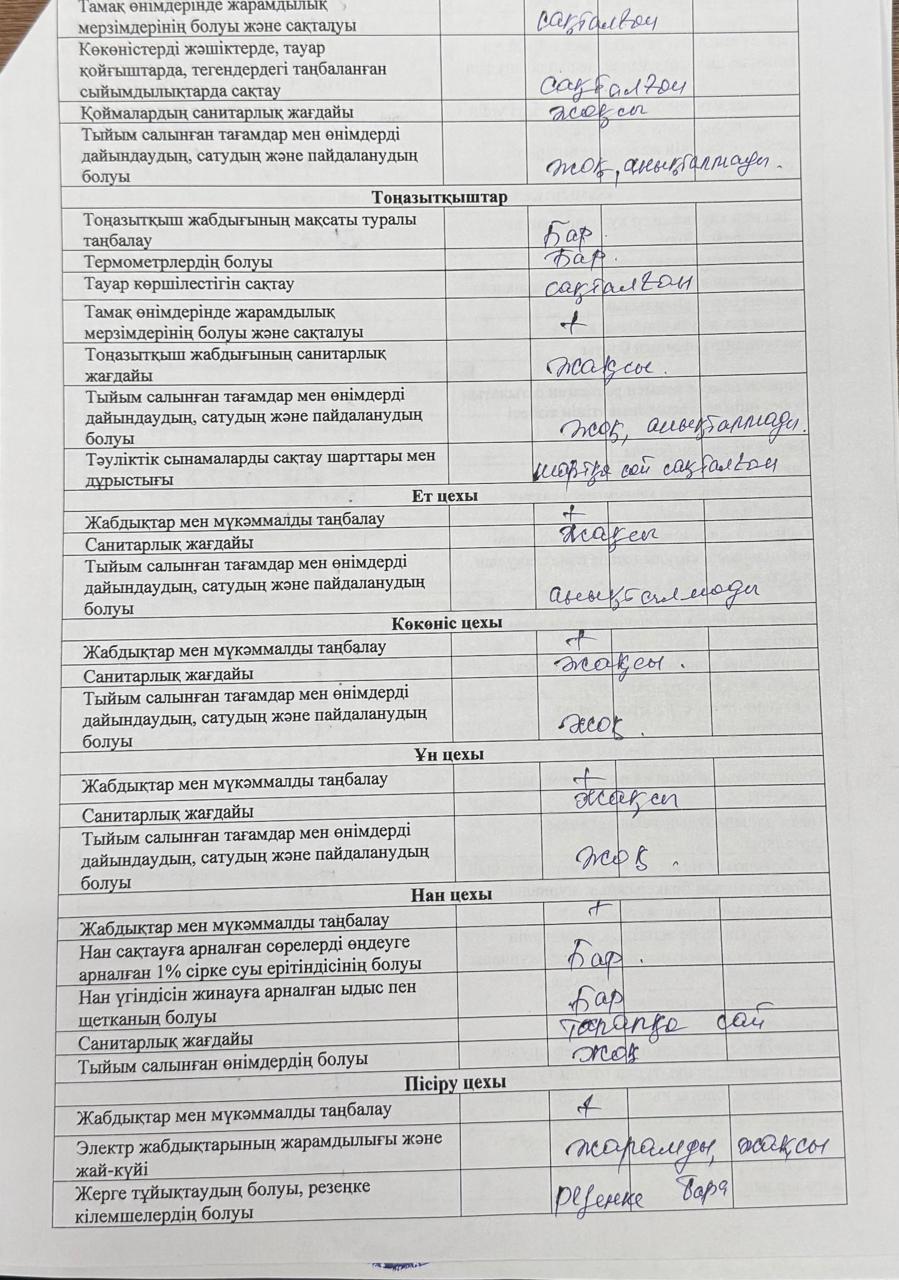 Тамақ өнімдерінде жарамдылық
мерзімдерінің болуы және сақталуы сақталған
Көкөністерді жәшіктерде, тауар
қойғыштарда, тегендердегі таңбаланған
сыйымдылықтарда сақтау сақталған
Қоймалардың санитарлық жағдайы жақсы
Тыйым салынған тағамдар мен өнімдерді
дайындаудың, сатудың және пайдаланудың
болуы жоқ, анықталмады.
Тоңазытқыштар
Тоңазытқыш жабдығының мақсаты туралы
таңбалау Бар.
Термометрлердің болуы Бар.
Тауар көршілестігін сақтау сақталған
Тамақ өнімдерінде жарамдылық
мерзімдерінің болуы және сақталуы +
Тоңазытқыш жабдығының санитарлық
жағдайы жақсы.
Тыйым салынған тағамдар мен өнімдерді
дайындаудың, сатудың және пайдаланудың
болуы жоқ, анықталмады.
Тәуліктік сынамаларды сақтау шарттары мен
дұрыстығы шартқа сай сақталған
Ет цехы
Жабдықтар мен мүкәммалды таңбалау +
Санитарлық жағдайы жақсы
Тыйым салынған тағамдар мен өнімдерді
дайындаудың, сатудың және пайдаланудың
болуы анықталмады
Көкөніс цехы
Жабдықтар мен мүкәммалды таңбалау +
Санитарлық жағдайы жақсы.
Тыйым салынған тағамдар мен өнімдерді
дайындаудың, сатудың және пайдаланудың
болуы жоқ.
Ұн цехы
Жабдықтар мен мүкәммалды таңбалау +
Санитарлық жағдайы жақсы
Тыйым салынған тағамдар мен өнімдерді
дайындаудың, сатудың және пайдаланудың
болуы жоқ.
Нан цехы
Жабдықтар мен мүкәммалды таңбалау +
Нан сақтауға арналған сөрелерді өңдеуге
арналған 1% сірке суы ерітіндісінің болуы Бар.
Нан үгіндісін жинауға арналған ыдыс пен
щетканың болуы Бар
Санитарлық жағдайы сай
Тыйым салынған өнімдердің болуы жоқ
Пісіру цехы
Жабдықтар мен мүкәммалды таңбалау +
Электр жабдықтарының жарамдылығы және
жай-күйі жарамды, жақсы
Жерге тұйықтаудың болуы, резеңке
кілемшелердің болуы резенке бар